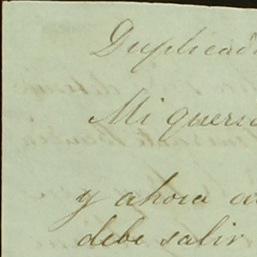 Duplicad
Mi quer
y ahora
debe salir